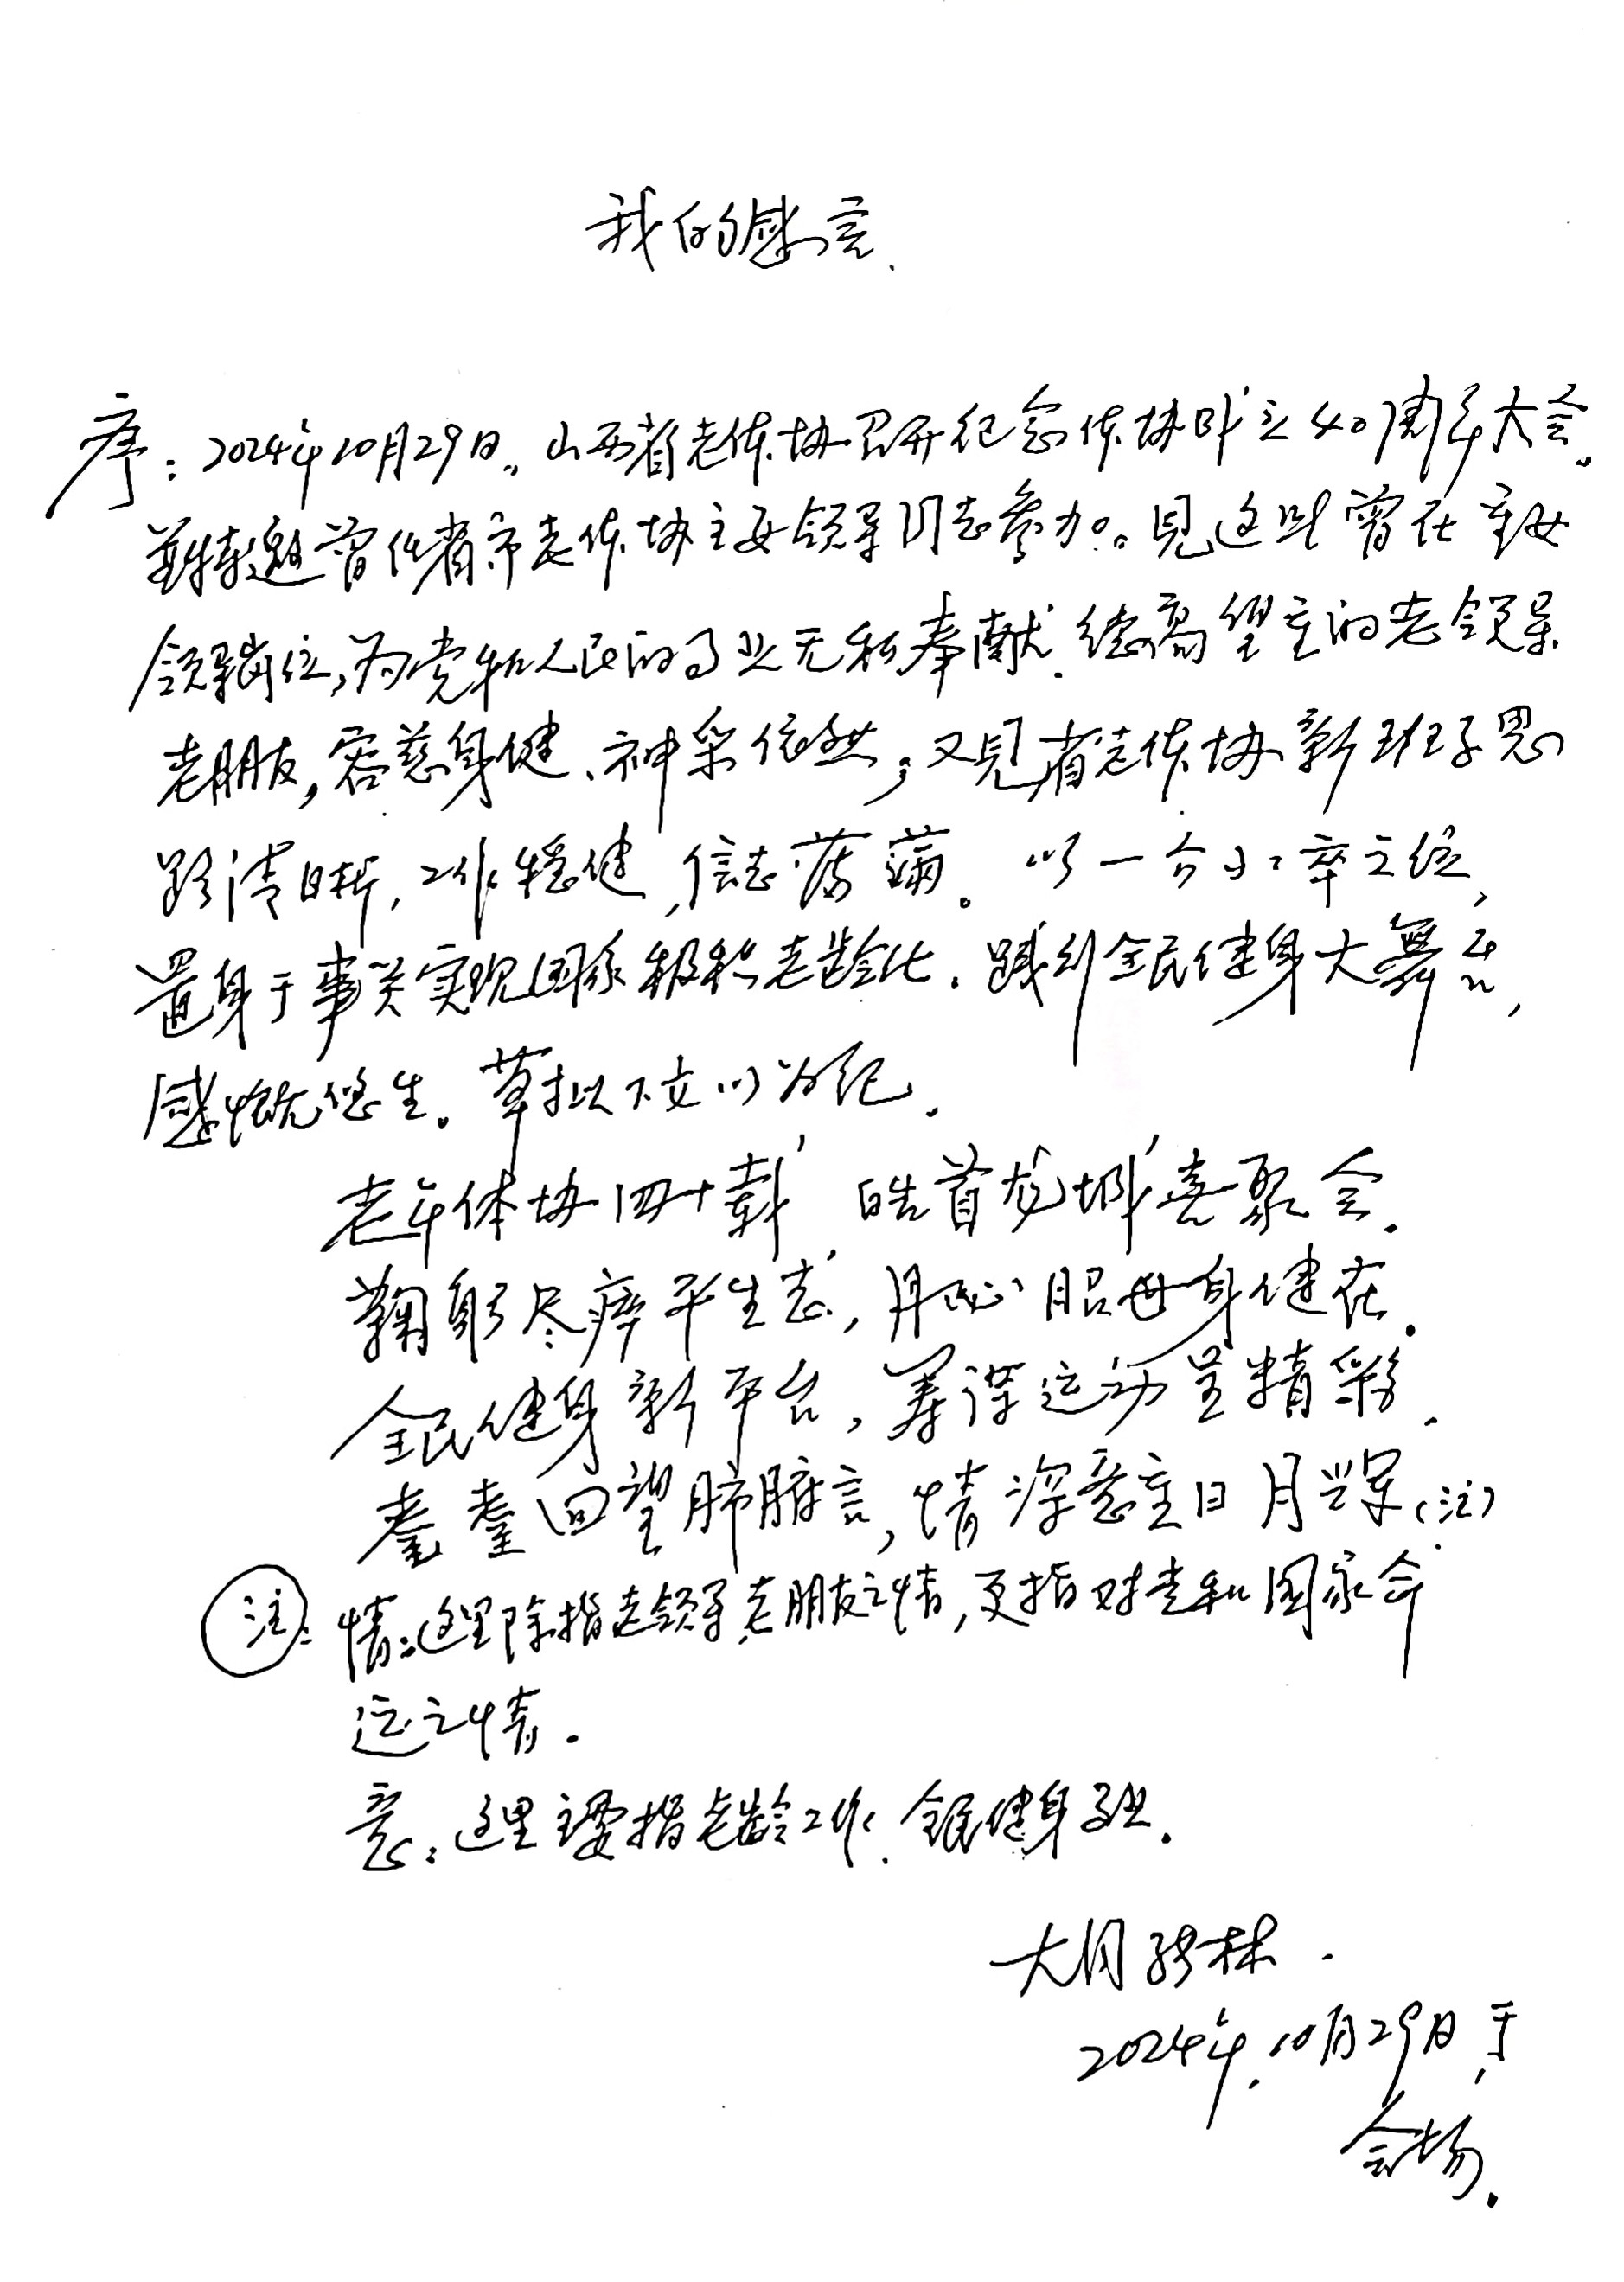 我的感言.
序:2024年10月29日。山西省老体协召开纪念体协成立40周年大会。
并特邀曾任省市老体协主要领导同志参加。見这些曾在重要
领导岗位,为党和人民的事业无私奉献.德高望重的老领导
老朋友,容慈身健、神采依然;又見省老体协新班子思
路清晰,工作稳健,信志满满。以一介小卒之位,
置身于事关实现国家积极老龄化.践行全民健身大舞台,
感慨悠生。草拟下文以为纪.
老年体协四十载,皓首龙城喜聚会.
鞠躬尽瘁平生志,丹心昭世身健在.
全民健身新平台,筹谋运动呈精彩.
耄耋回望肺腑言,情深意重日月鉴(注)
注:情:这里除指老领导,老朋友之情,更指对党和国家命
运之情.
意:这里主要指老龄工作.全民健身事业.
2024年.10月29日,于
会场.